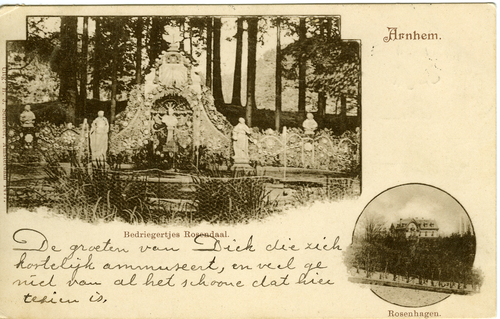 Arnhem.
Bedriegertjes Rosendaal.
De groeten van Dick die zich
kostelijk ammuseert, en veel ge
niet van al het schoone dat hier
te zien is.
Rosenhagen.